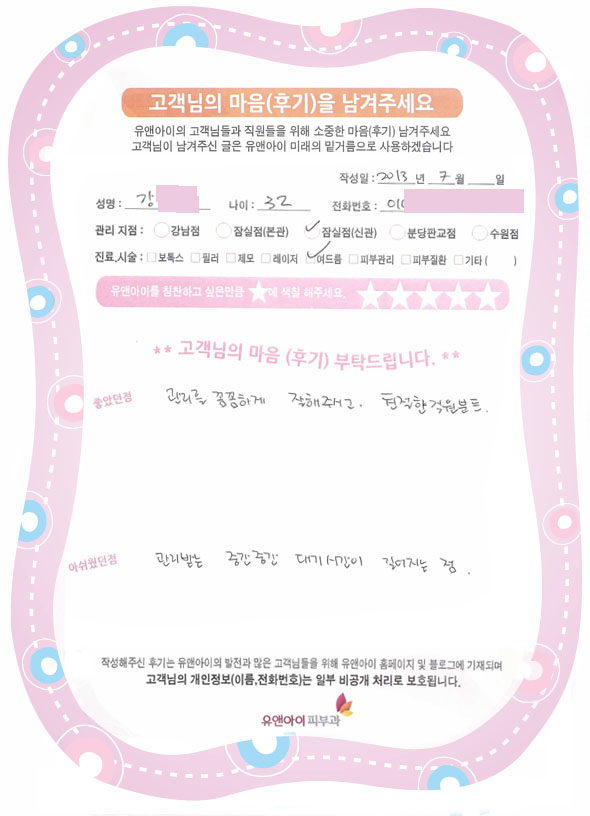 고객님의 마음(후기)을 남겨주세요
유앤아이의 고객님들과 직원들을 위해 소중한 마음(후기) 남겨주세요
고객님이 남겨주신 글은 유앤아이 미래의 밑거름으로 사용하겠습니다
작성일 : 2013 년 7 월 일
성명 : 강 나이 : 32 전화번호 : 01
관리 지점 : 강남점 잠실점(본관) ✓잠실점(신관) 분당판교점 수원점
진료,시술 : □보톡스 □필러 □제모 □레이저 ✓여드름 □피부관리 □피부질환 □기타 ( )
유앤아이를 칭찬하고 싶은만큼 ★에 색칠 해주세요. ★★★★★
** 고객님의 마음 (후기) 부탁드립니다. **
좋았던점 관리를 꼼꼼하게 잘해주시고. 친절한 직원분들.
아쉬웠던점 관리받는 중간중간 대기시간이 길어지는 점.
작성해주신 후기는 유앤아이의 발전과 많은 고객님들을 위해 유앤아이 홈페이지 및 블로그에 기재되며
고객님의 개인정보(이름,전화번호)는 일부 비공개 처리로 보호됩니다.
유앤아이피부과